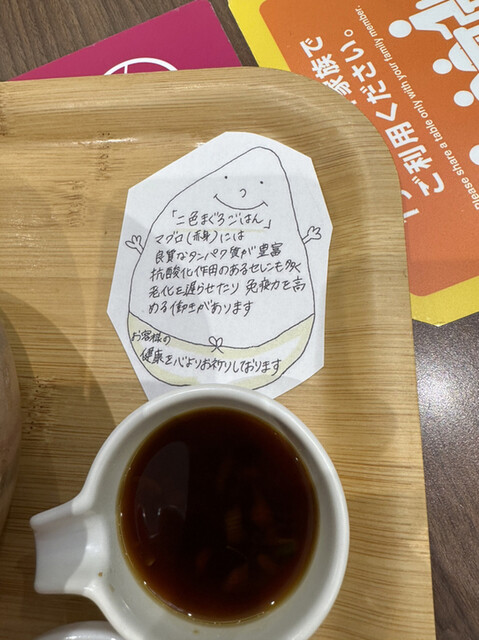 「二色まぐろごはん」
マグロ(赤身)には
良質なタンパク質が豊富
抗酸化作用のあるセレンも多く
老化を遅らせたり 免疫力を高
める働きがあります
お客様の
健康を心よりお祈りしております
家族で
ご利用ください。
please share a table only with your family member.